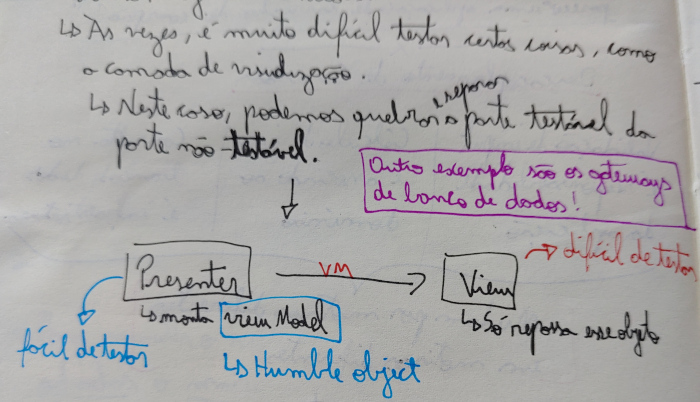 ↳ As vezes, é muito difícil testar certas coisas, como
a camada de visualização.
↳ Neste caso, podemos quebrar e separar a parte testável da
parte não testável.
Outro exemplo são os gateways
de banco de dados!
Presenter
VM
View
→ difícil de testar
↳ monta view Model
↳ Só repassa esse objeto
fácil de testar
↳ Humble object